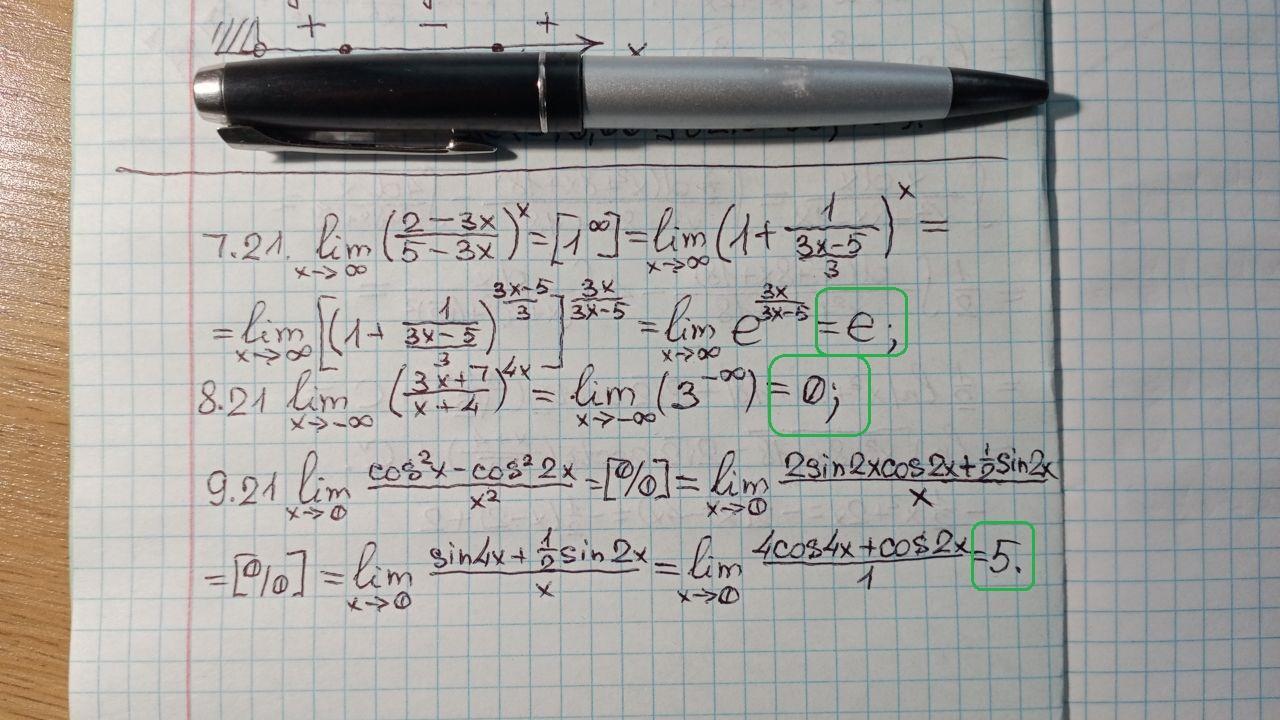 + − +
x
7.21. lim x→∞ ((2−3x)/(5−3x))^x = [1^∞] = lim x→∞ (1+1/((3x−5)/3))^x =
= lim x→∞ [(1+1/((3x−5)/3))^((3x−5)/3)]^(3x/(3x−5)) = lim x→∞ e^(3x/(3x−5)) = e;
8.21 lim x→−∞ ((3x+7)/(x+4))^4x = lim x→−∞ (3^−∞) = 0;
9.21 lim x→0 (cos²x−cos²2x)/x² = [0/0] = lim x→0 (2sin2xcos2x+½sin2x)/x
= [0/0] = lim x→0 (sin4x+½sin2x)/x = lim x→0 (4cos4x+cos2x)/1 = 5.